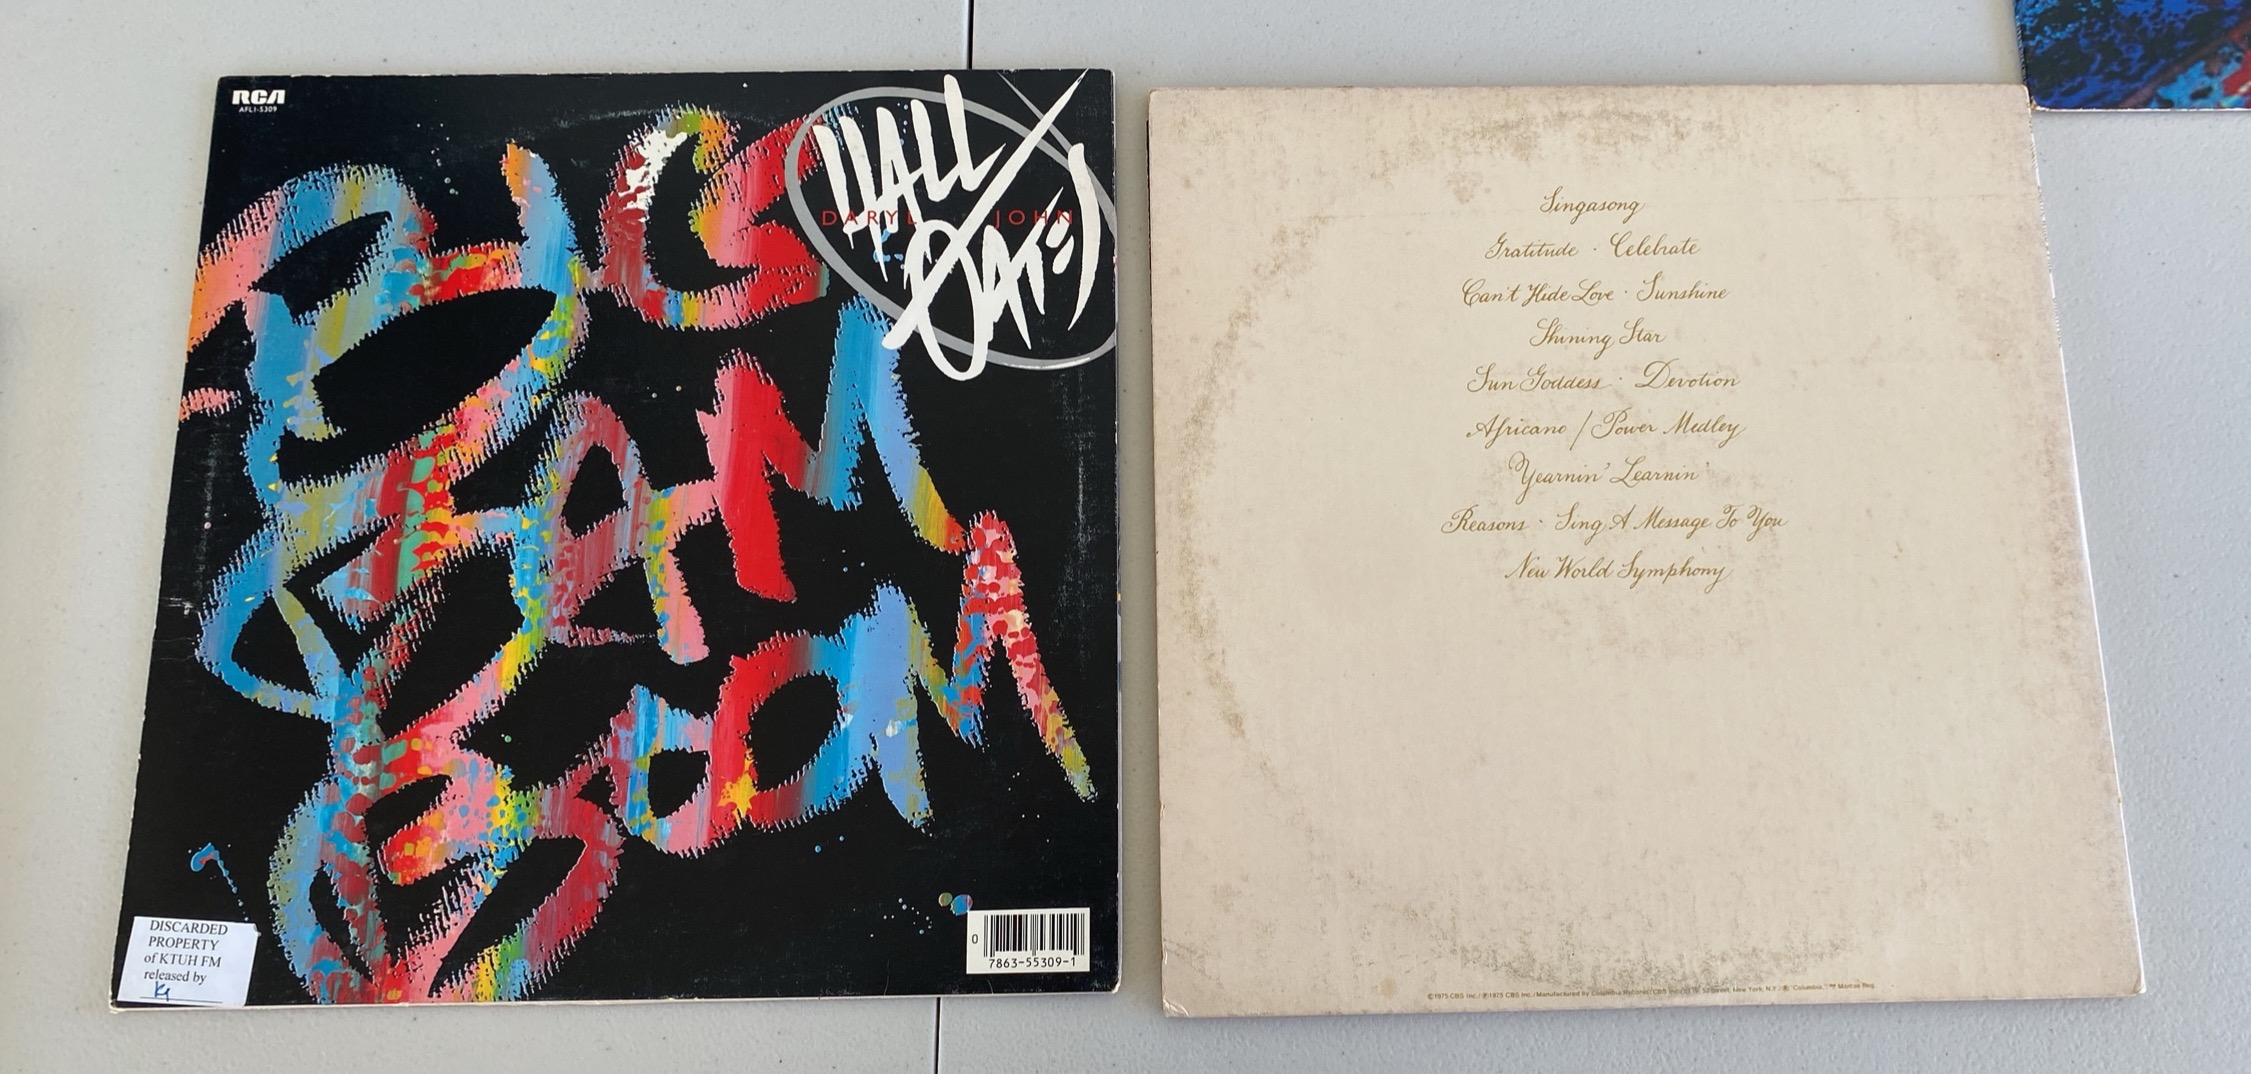 RCA
AFL1-5309
HALL
DARYL JOHN
OATES
BIG
BAM
BOOM
DISCARDED
PROPERTY
of KTUH FM
released by
0
7863-55309-1
Singasong
Gratitude · Celebrate
Can't Hide Love · Sunshine
Shining Star
Sun Goddess · Devotion
Africano / Power Medley
Yearnin' Learnin'
Reasons · Sing A Message To You
New World Symphony
©1975 CBS Inc./℗1975 CBS Inc./Manufactured by Columbia Records/CBS Inc./51 W. 52 Street, New York, N.Y./® "Columbia," ™ Marcas Reg.